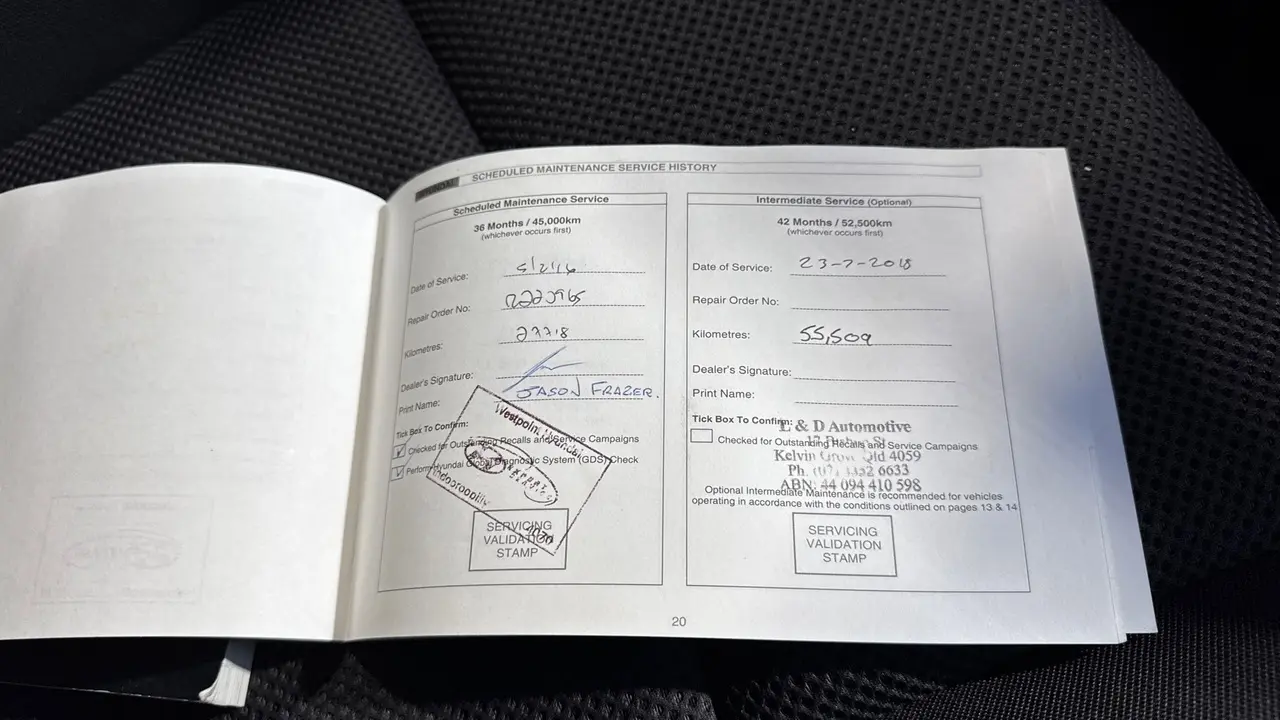 HYUNDAI
SCHEDULED MAINTENANCE SERVICE HISTORY
Scheduled Maintenance Service
36 Months / 45,000km
(whichever occurs first)
Date of Service: 5/2/16
Repair Order No:
Kilometres:
Dealer's Signature:
Print Name: JASON FRAZER.
Tick Box To Confirm:
Checked for Outstanding Recalls and Service Campaigns
Perform Hyundai Global Diagnostic System (GDS) Check
Westpoint Hyundai
Indooroopilly
SERVICING
VALIDATION
STAMP
Intermediate Service (Optional)
42 Months / 52,500km
(whichever occurs first)
Date of Service: 23-7-2018
Repair Order No:
Kilometres: 55,509
Dealer's Signature:
Print Name:
Tick Box To Confirm:
& D Automotive
Checked for Outstanding Recalls and Service Campaigns
Kelvin Grove Qld 4059
Ph. (07) 6633
ABN: 44 094 410 598
Optional Intermediate Maintenance is recommended for vehicles
operating in accordance with the conditions outlined on pages 13 & 14
SERVICING
VALIDATION
STAMP
20